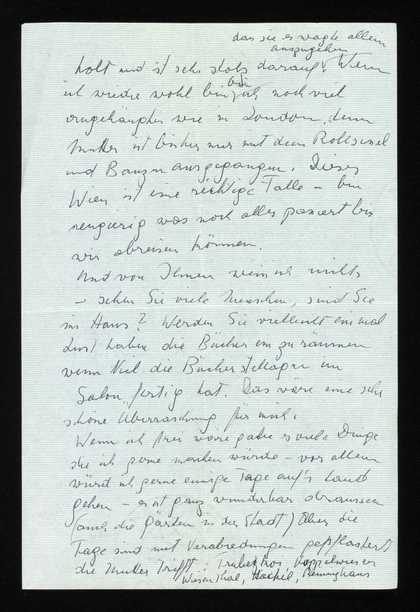 dass sie es wagte allein
auszugehen
holt und ist sehr stolz darauf! Wenn
ich wieder wohl bin ich noch viel
angehängter wie in London, denn
Mutter ist bisher nur mit dem Rollsessel
und Banzin ausgegangen. Dieses
Wien ist eine richtige Falle – bin
neugierig was noch alles passiert bis
wir abreisen können.
Und von Ihnen weiss ich nichts
– sehen Sie viele Menschen, sind Sie
im Haus? Werden Sie vielleicht einmal
Lust haben die Bücher einzuräumen
wenn Niel die Bücherstellagen im
Salon fertig hat. Das wäre eine sehr
schöne Überraschung für mich.
Wenn ich frei wäre gäbe es viele Dinge
die ich gerne machen würde – vor allem
würd ich gerne einige Tage auf's Land
gehen – es ist ganz wunderbar draussen
(auch die Gärten in der Stadt) Aber die
Tage sind mit Verabredungen gepflastert
die Mutter trifft:
Wiesenthal,